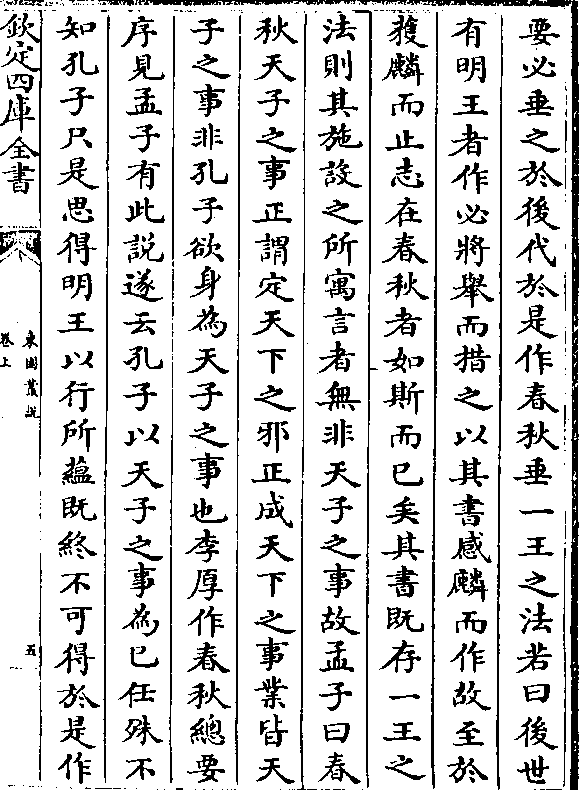 要必垂之於後代於是作春秋垂一王之法若曰後世
有明王者作必將舉而措之以其書感麟而作故至於
獲麟而止志在春秋者如斯而已矣其書既存一王之
法則其施設之所寓言者無非天子之事故孟子曰春
秋天子之事正謂定天下之邪正成天下之事業皆天
子之事非孔子欲身為天子之事也李厚作春秋總要
序見孟子有此説遂云孔子以天子之事為已任殊不
知孔子只是思得明王以行所蘊既終不可得於是作
欽定四庫全書
東園叢説
卷上
五